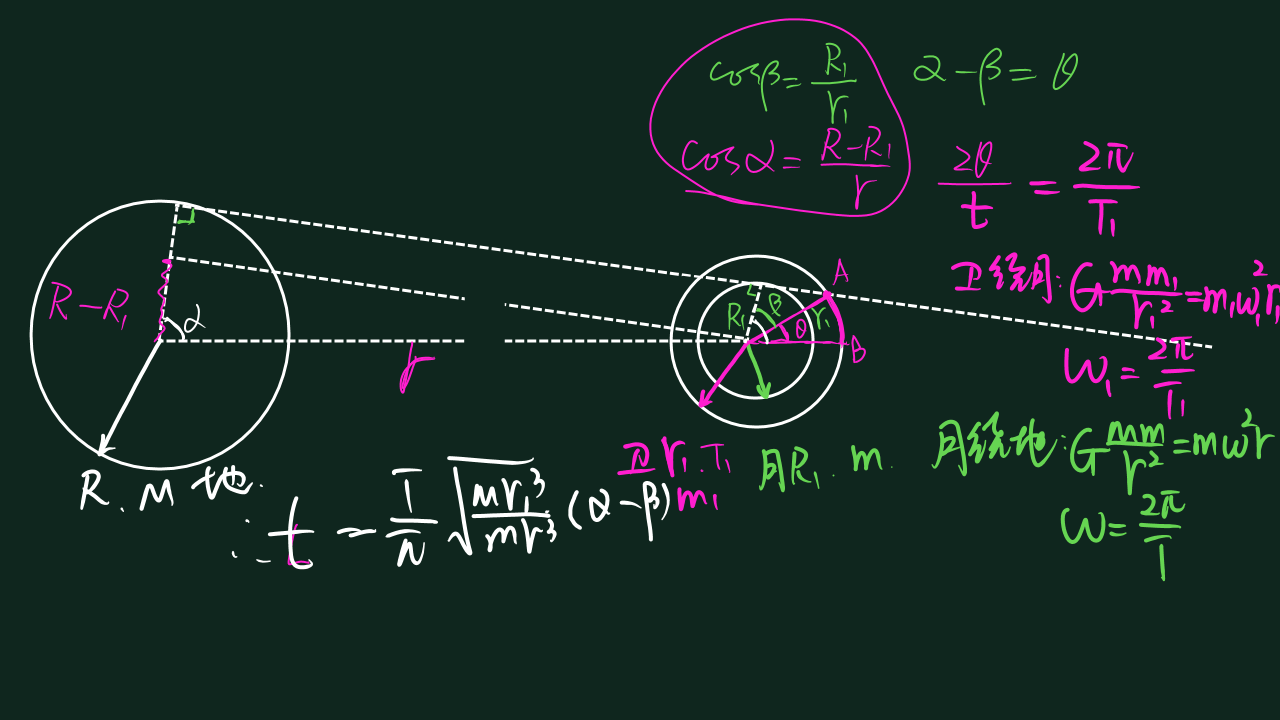 cosβ = R₁/r₁
α-β=θ
cosα = (R-R₁)/r
2θ/t = 2π/T₁
卫绕月: G mm₁/r₁² = m₁ω₁²r₁
ω₁ = 2π/T₁
月绕地: G Mm/r² = mω²r
ω = 2π/T
R-R₁
α
r
R₁
β
θ
r₁
A
B
R.M 地.
卫 r₁.T₁
m₁
月R₁.m.
∴ t = T/π √(Mr₁³/mr³) (α-β)